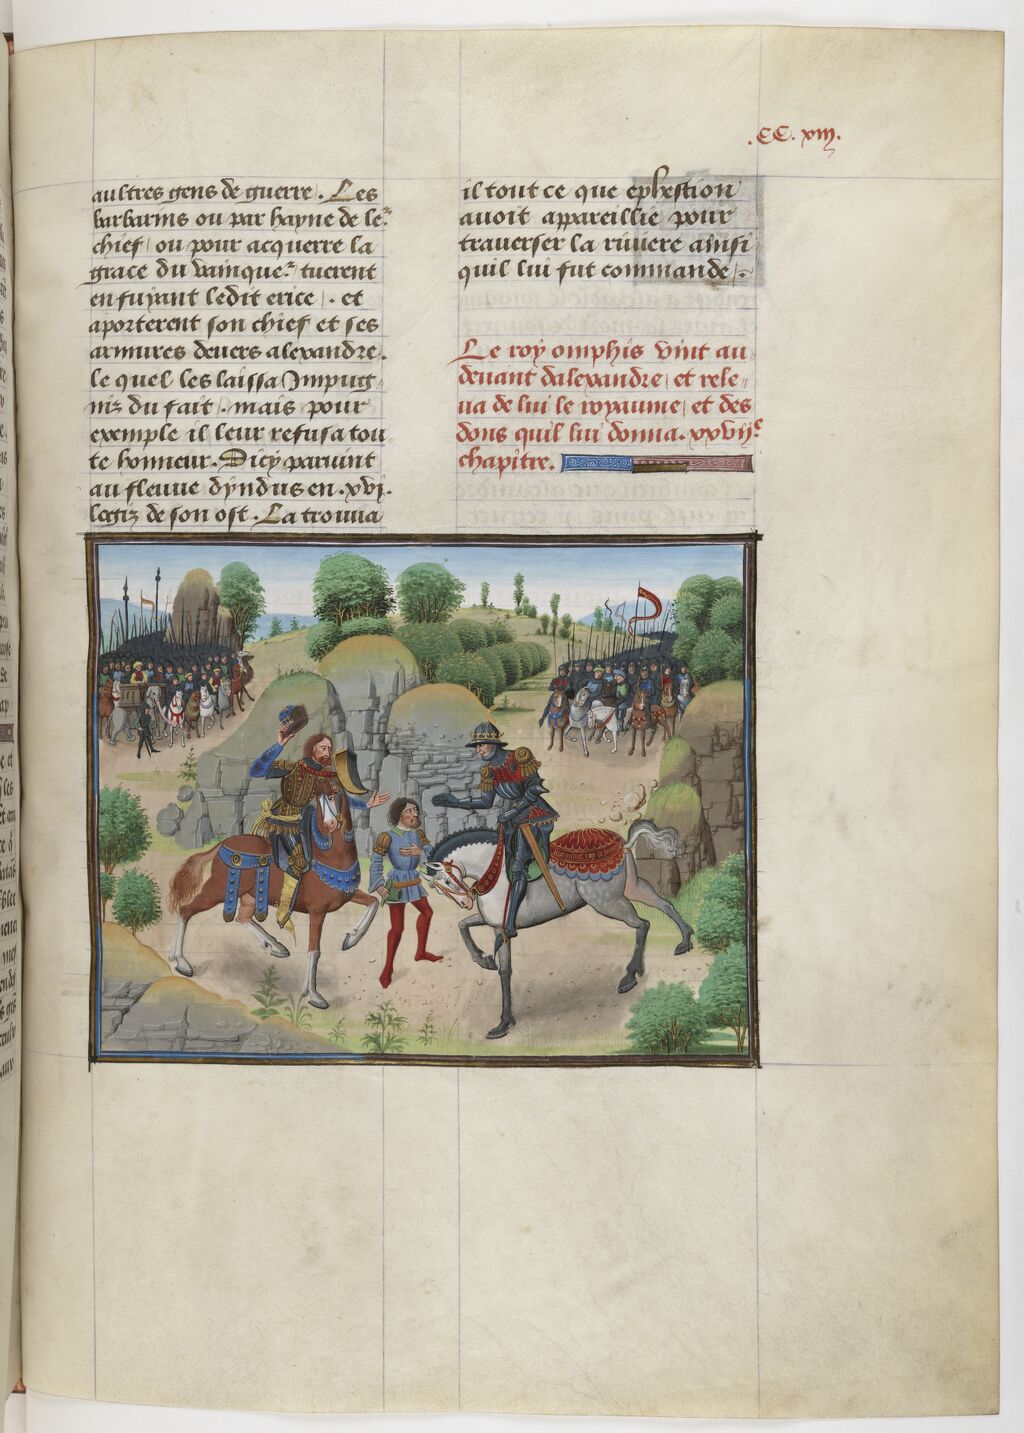 .CC. xiij.
aultres gens de guerre. Les
barbarins ou par hayne de le.r
chief, ou pour acquerre la
grace du vainque.r tuerent
en fuyant ledit erice. et
aporterent son chief et ses
armures devers alexandre.
le quel les laissa Jmpug,
niz du fait. mais pour
exemple il leur refusa tou
te honneur. Dicy parvint
au fleuve dyndus en .xvj.
logiz de son ost. La trouva
il tout ce que ephestion
avoit appareillie pour
traverser la riviere ainsi
quil lui fut commande.
Le roy omphis vint au,
devant dalexandre, et rele,
va de lui le royaume, et des
dons quil lui donna. xxvije
chapitre.